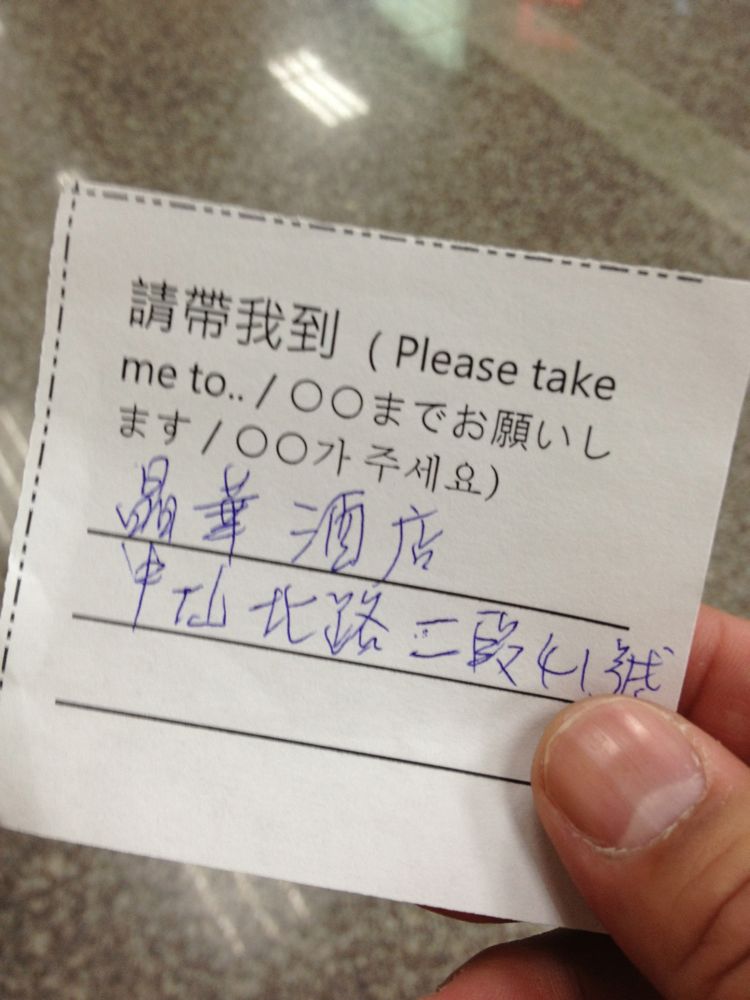 請帶我到 (Please take
me to.. / 〇〇までお願いし
ます / 〇〇가 주세요)
晶華酒店
中山北路二段41號